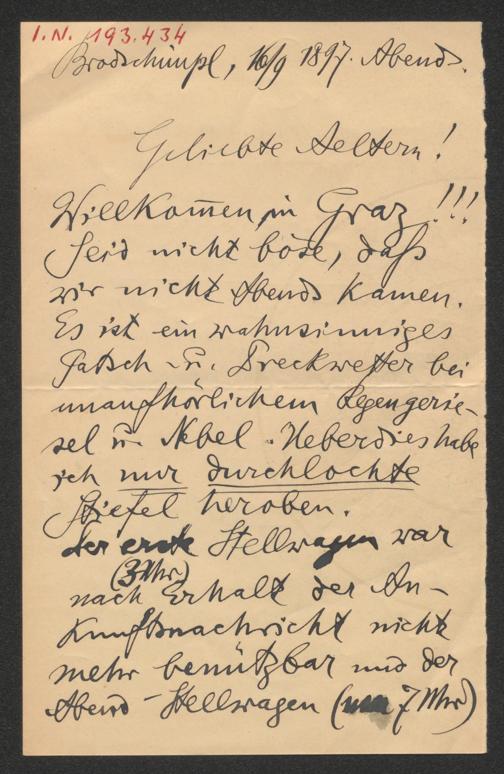 I.N. 193.434
Brodschimpl, 16/9 1897. Abends.
Geliebte Aeltern!
Willkom̅en in Graz!!!
Seid nicht böse, daß
wir nicht Abends kamen.
Es ist ein wahnsinniges
Patsch- u. Dreckwetter bei
unaufhörlichem Regengerie-
sel u. Nebel. Ueberdies habe
ich nur durchlochte
Stiefel heroben.
Der erste Stellwagen war
(3 Uhr)
nach Erhalt der An-
kunftsnachricht nicht
mehr benützbar und der
Abend-Stellwagen (7 Uhr)